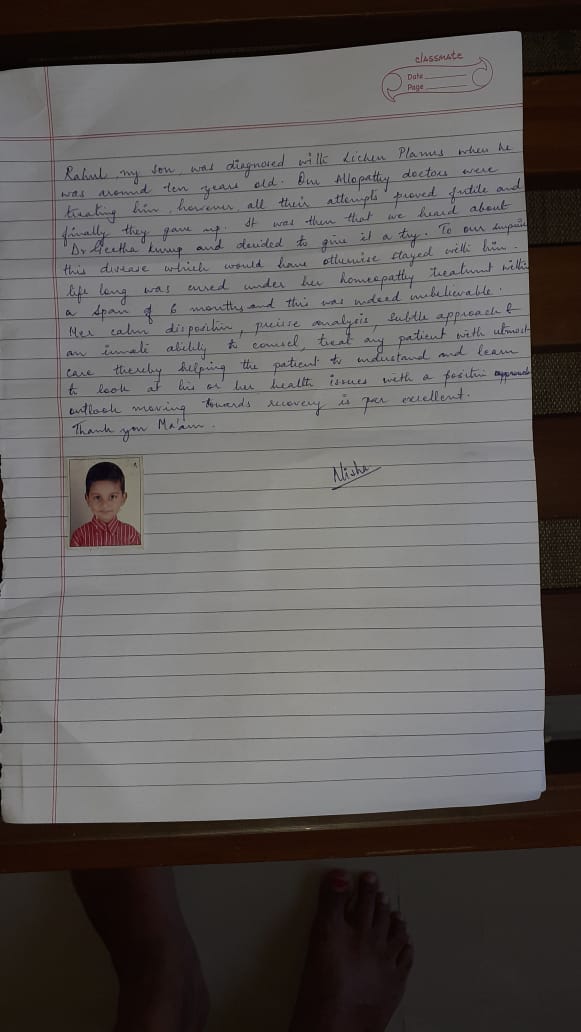 classmate
Date
Page
Rahul, my son, was diagnosed with Lichen Planus when he
was around ten years old. Our Allopathy doctors were
treating him, however all their attempts proved futile and
finally they gave up. It was then that we heard about
Dr Geetha and decided to give it a try. To our
this disease which would have otherwise stayed with him
life long was cured under her homeopathy treatment within
a span of 6 months and this was indeed unbelievable.
Her calm disposition, precise analysis, subtle approach &
an innate ability to counsel, treat any patient with utmost
care thereby helping the patient to understand and learn
to look at his or her health issues with a positive approach
outlook moving towards recovery is par excellent.
Thank you Ma'am.
Nisha